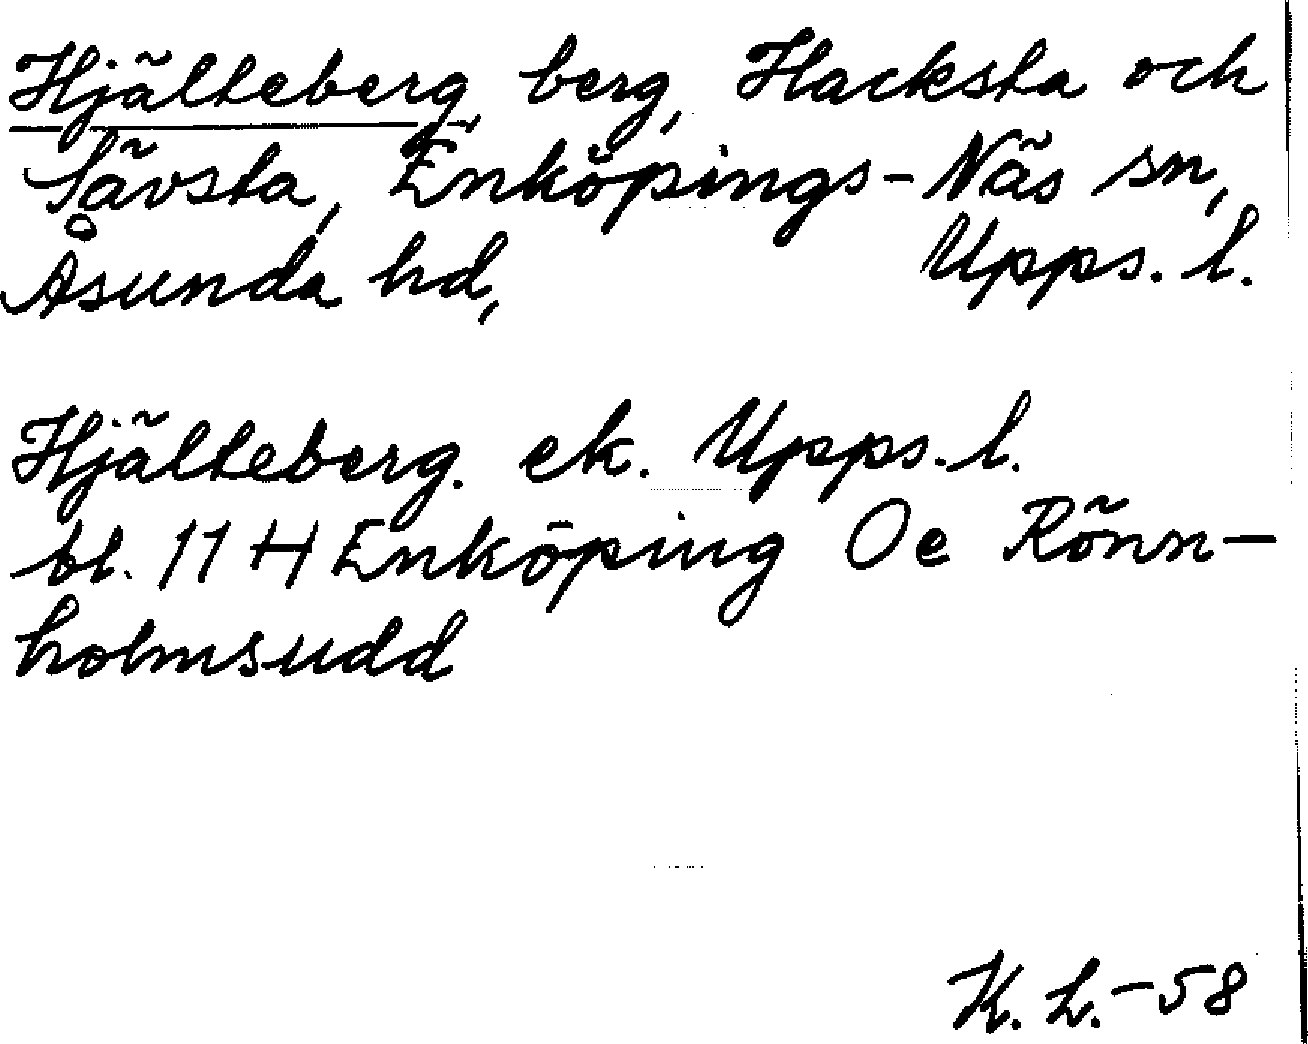 Hjälteberg, berg, Hacksta och
Sävsta, Enköpings-Näs sn,
Åsunda hd, Upps. l.
Hjälteberg. ek. Upps. l.
bl. 11 H Enköping Oe Rönn-
holmsudd
K. L. -58